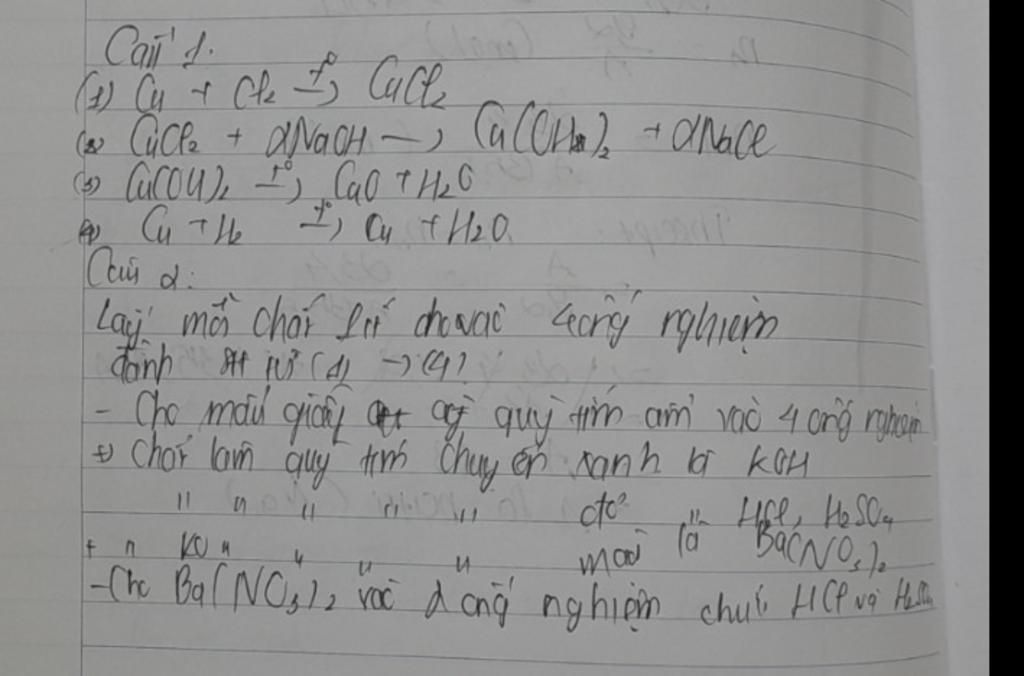 Câu 1:
(1) Cu + Cl₂ –t°→ CuCl₂
(2) CuCl₂ + 2NaOH → Cu(OH)₂ + 2NaCl
(3) Cu(OH)₂ –t°→ CuO + H₂O
(4) Cu + H₂ –t°→ Cu + H₂O
Câu 2:
Lấy mỗi chất 1 ít cho vào 4 ống nghiệm
đánh stt từ (1) → (4)
- Cho mẩu giấy quỳ tím ẩm vào 4 ống nghiệm
+) Chất làm quỳ tím chuyển xanh là KOH
" " " " " đỏ là HCl, H₂SO₄
+ " ko " " " " màu là Ba(NO₃)₂
- Cho Ba(NO₃)₂ vào 2 ống nghiệm chứa HCl và H₂SO₄